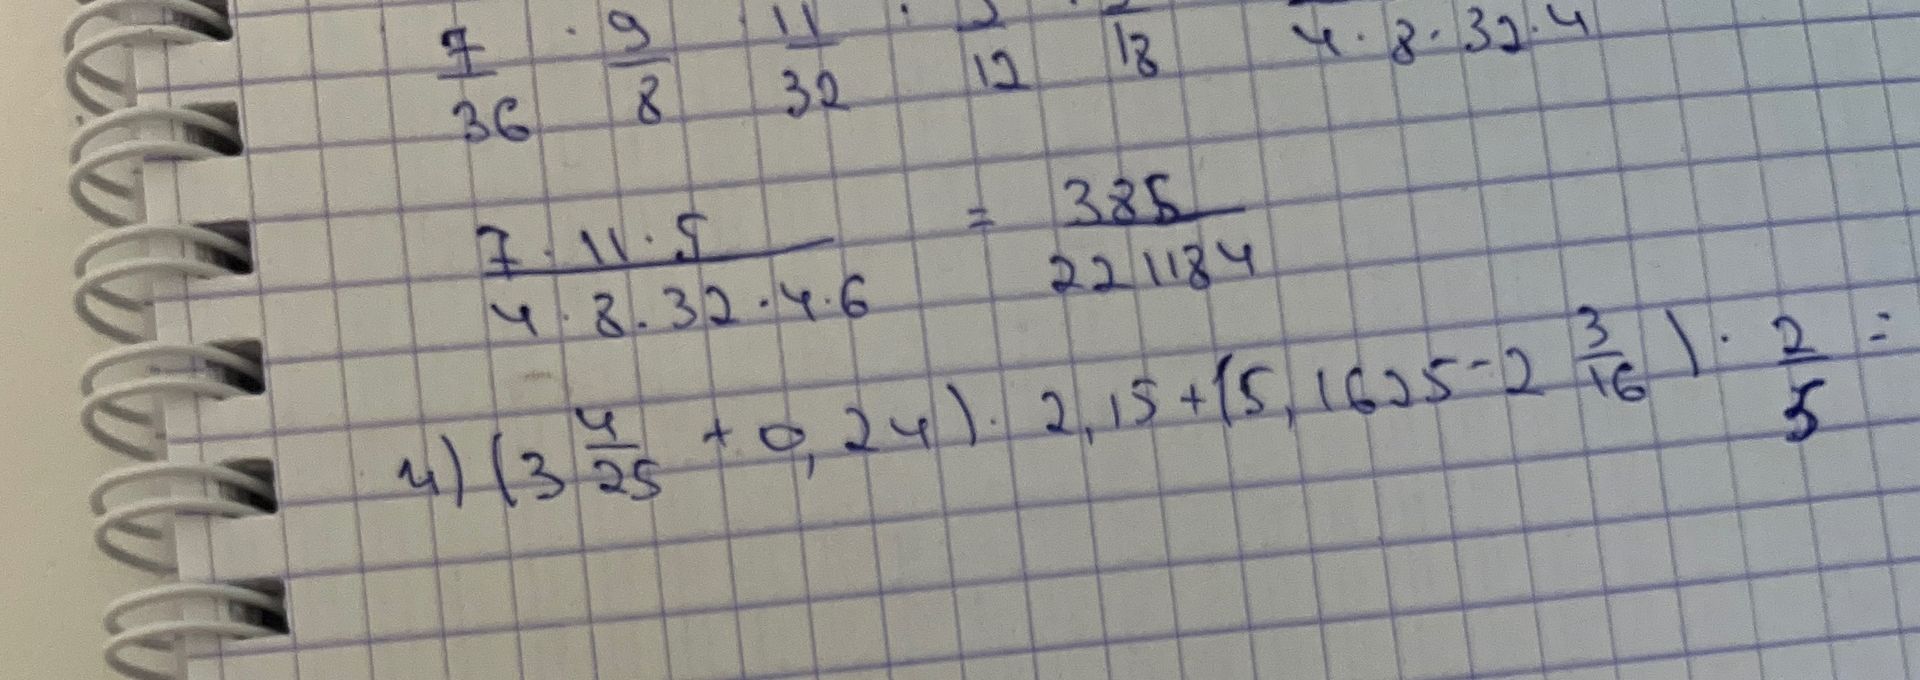 7/36 · 9/8 11/32 · /12 · /18 4 · 8 · 32 · 4
7 · 11 · 5 / 4 · 8 · 32 · 4 · 6 = 385 / 221184
4) (3 4/25 + 0,24) · 2,15 + (5,1625 - 2 3/16) · 2/5 =